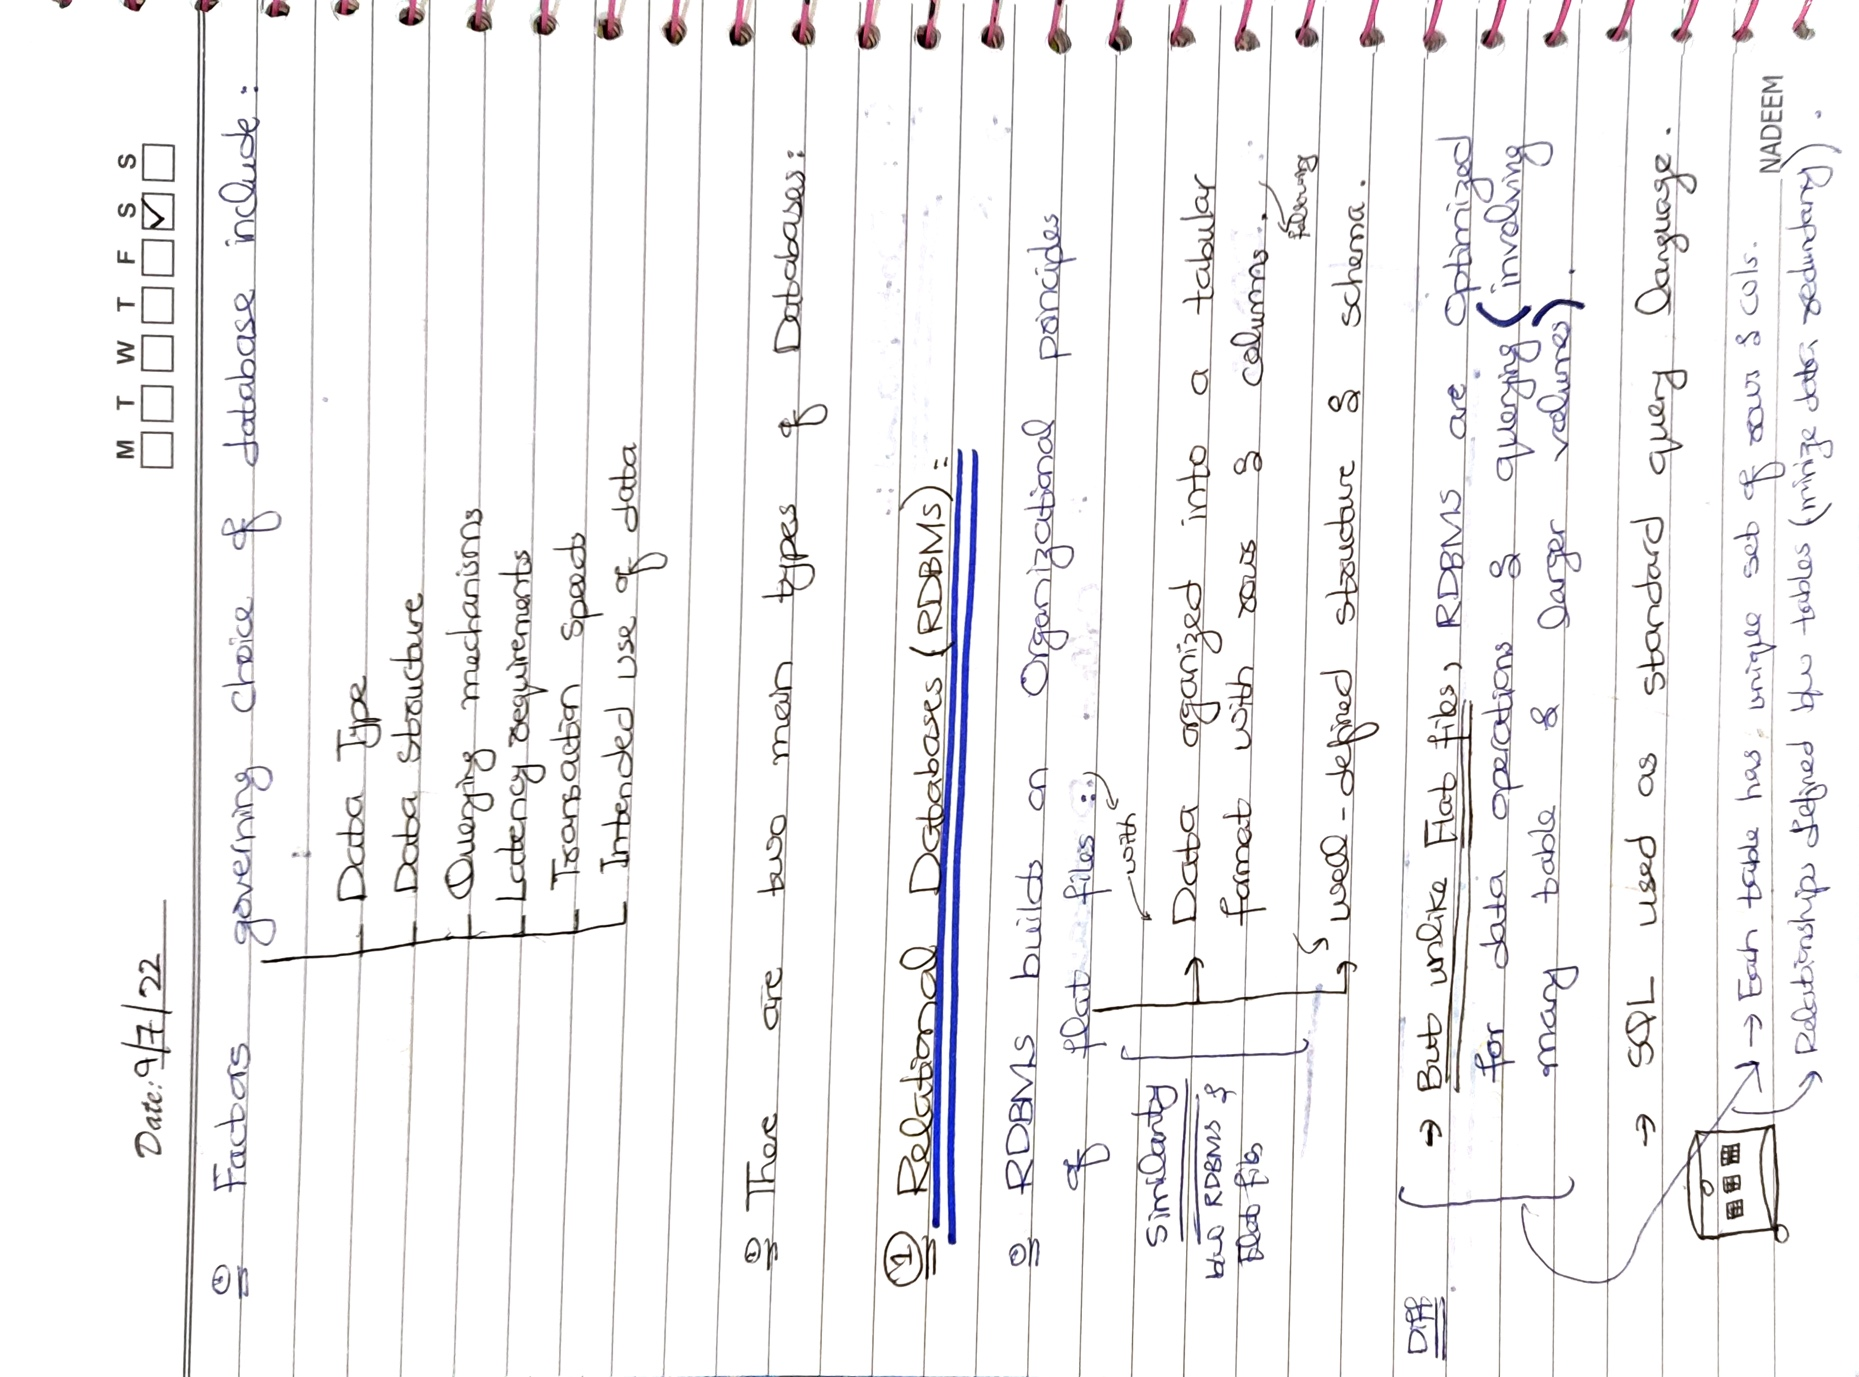 Date: 9/7/22
M T W T F S S
Factors governing choice of database include:
Data Type
Data Structure
Querying mechanisms
Latency requirements
Transaction speeds
Intended use of data
There are two main types of Databases:
1 Relational Databases (RDBMS):
RDBMS builds on Organizational principles
of flat files:
with
Similarity
b/w RDBMS &
Flat files
→ Data organized into a tabular
format with rows & columns.
following
well-defined structure & schema.
Diff
→ But unlike Flat files, RDBMS are Optimized
for data operations & querying (involving
many table & larger volumes).
→ SQL used as standard query language.
→ Each table has unique set of rows & cols.
Relationships defined b/w tables (minize data redundancy).
NADEEM